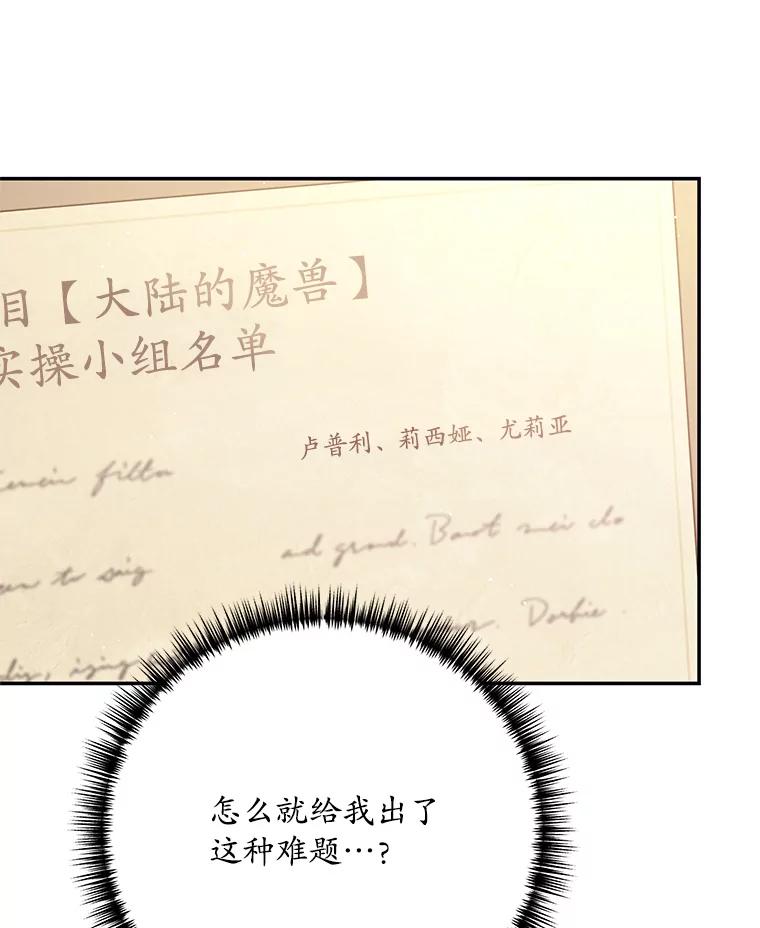 目【大陆的魔兽】
实操小组名单
卢普利、莉西娅、尤莉亚
filta
ad grond. Baot mei clo
to sig
Dorbie.
怎么就给我出了
这种难题…?